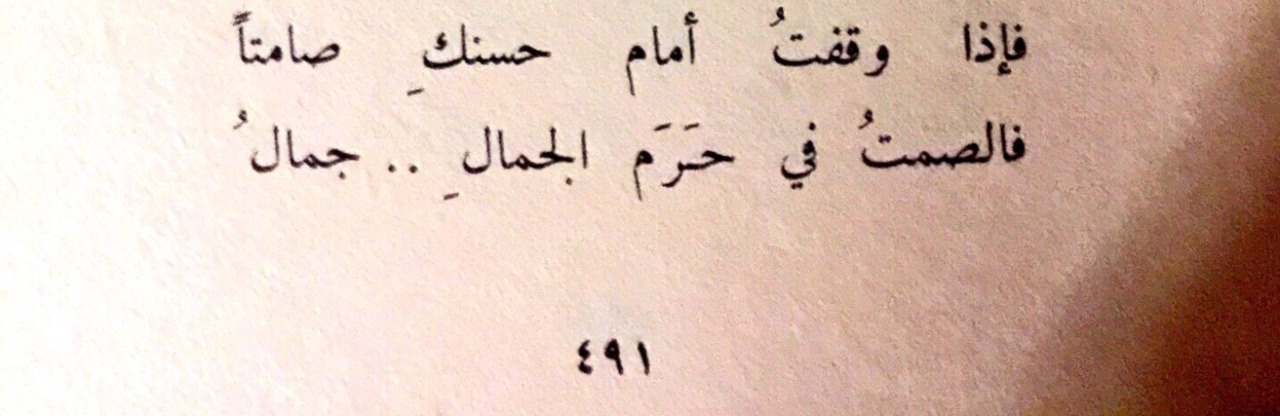 فإذا وقفتُ أمام حسنكِ صامتاً
فالصمتُ في حَرَم الجمالِ .. جمالُ
٤٩١